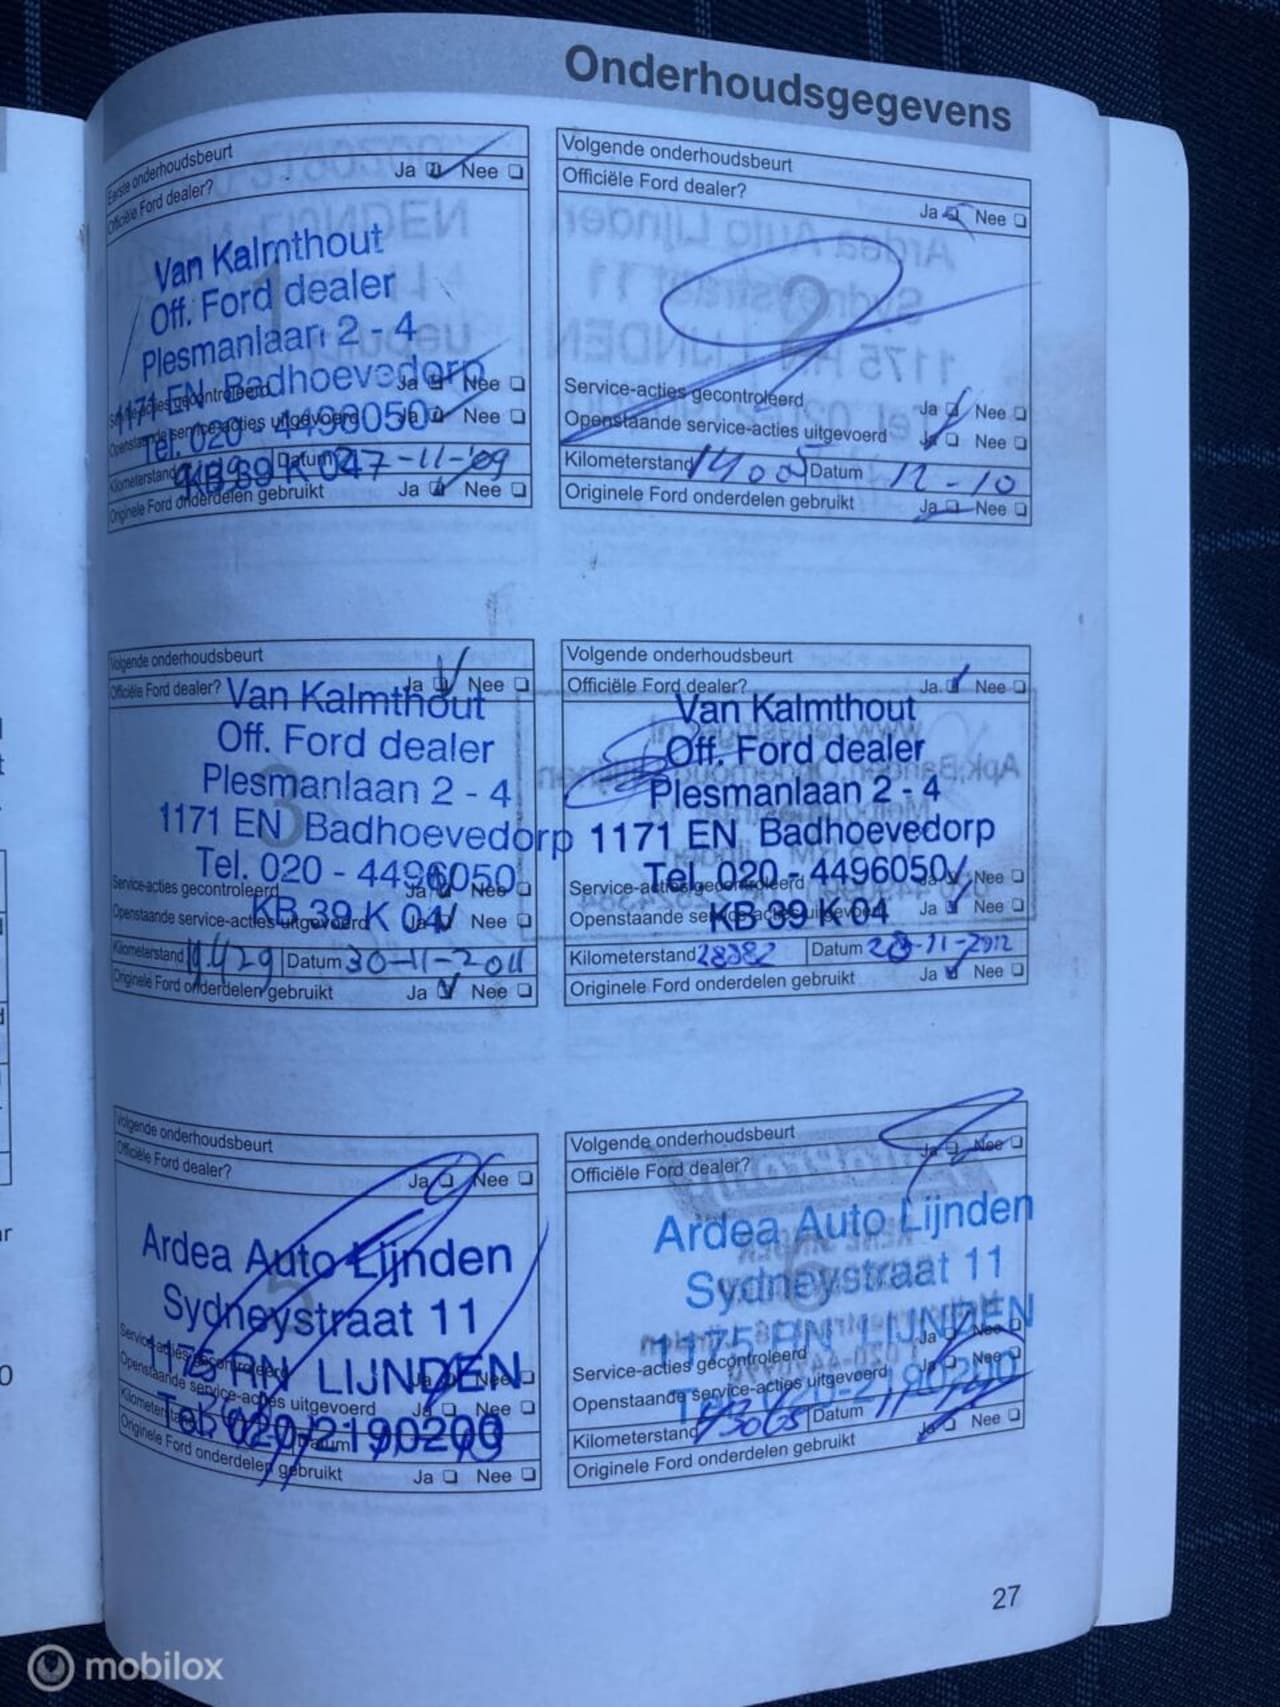 Onderhoudsgegevens
Eerste onderhoudsbeurt
Officiële Ford dealer?
Ja Nee
Van Kalmthout
Off. Ford dealer
Plesmanlaan 2 - 4
1171 EN Badhoevedorp
Tel. 020 - 4496050
KB 39 K 04
Service-acties gecontroleerd Ja Nee
Openstaande service-acties uitgevoerd Ja Nee
Kilometerstand Datum 27-11-'09
Originele Ford onderdelen gebruikt Ja Nee
Volgende onderhoudsbeurt
Officiële Ford dealer?
Ja Nee
2
Service-acties gecontroleerd Ja Nee
Openstaande service-acties uitgevoerd Ja Nee
Kilometerstand 14005 Datum 12-10
Originele Ford onderdelen gebruikt Ja Nee
Volgende onderhoudsbeurt
Officiële Ford dealer? Ja Nee
3
Van Kalmthout
Off. Ford dealer
Plesmanlaan 2 - 4
1171 EN Badhoevedorp
Tel. 020 - 4496050
KB 39 K 04
Service-acties gecontroleerd Ja Nee
Openstaande service-acties uitgevoerd Ja Nee
Kilometerstand 19.429 Datum 30-11-2011
Originele Ford onderdelen gebruikt Ja Nee
Volgende onderhoudsbeurt
Officiële Ford dealer? Ja Nee
Van Kalmthout
Off. Ford dealer
Plesmanlaan 2 - 4
1171 EN Badhoevedorp
Tel. 020 - 4496050
KB 39 K 04
Service-acties gecontroleerd Ja Nee
Openstaande service-acties uitgevoerd Ja Nee
Kilometerstand 28382 Datum 28-11-2012
Originele Ford onderdelen gebruikt Ja Nee
Volgende onderhoudsbeurt
Officiële Ford dealer?
Ja Nee
5
Ardea Auto Lijnden
Sydneystraat 11
1175 RN LIJNDEN
Tel. 020-2190200
Service-acties gecontroleerd Ja Nee
Openstaande service-acties uitgevoerd Ja Nee
Kilometerstand Datum
Originele Ford onderdelen gebruikt Ja Nee
Volgende onderhoudsbeurt
Officiële Ford dealer?
Ja Nee
6
Ardea Auto Lijnden
Sydneystraat 11
1175 RN LIJNDEN
Tel. 020-2190200
Service-acties gecontroleerd Ja Nee
Openstaande service-acties uitgevoerd Ja Nee
Kilometerstand Datum
Originele Ford onderdelen gebruikt Ja Nee
27
mobilox